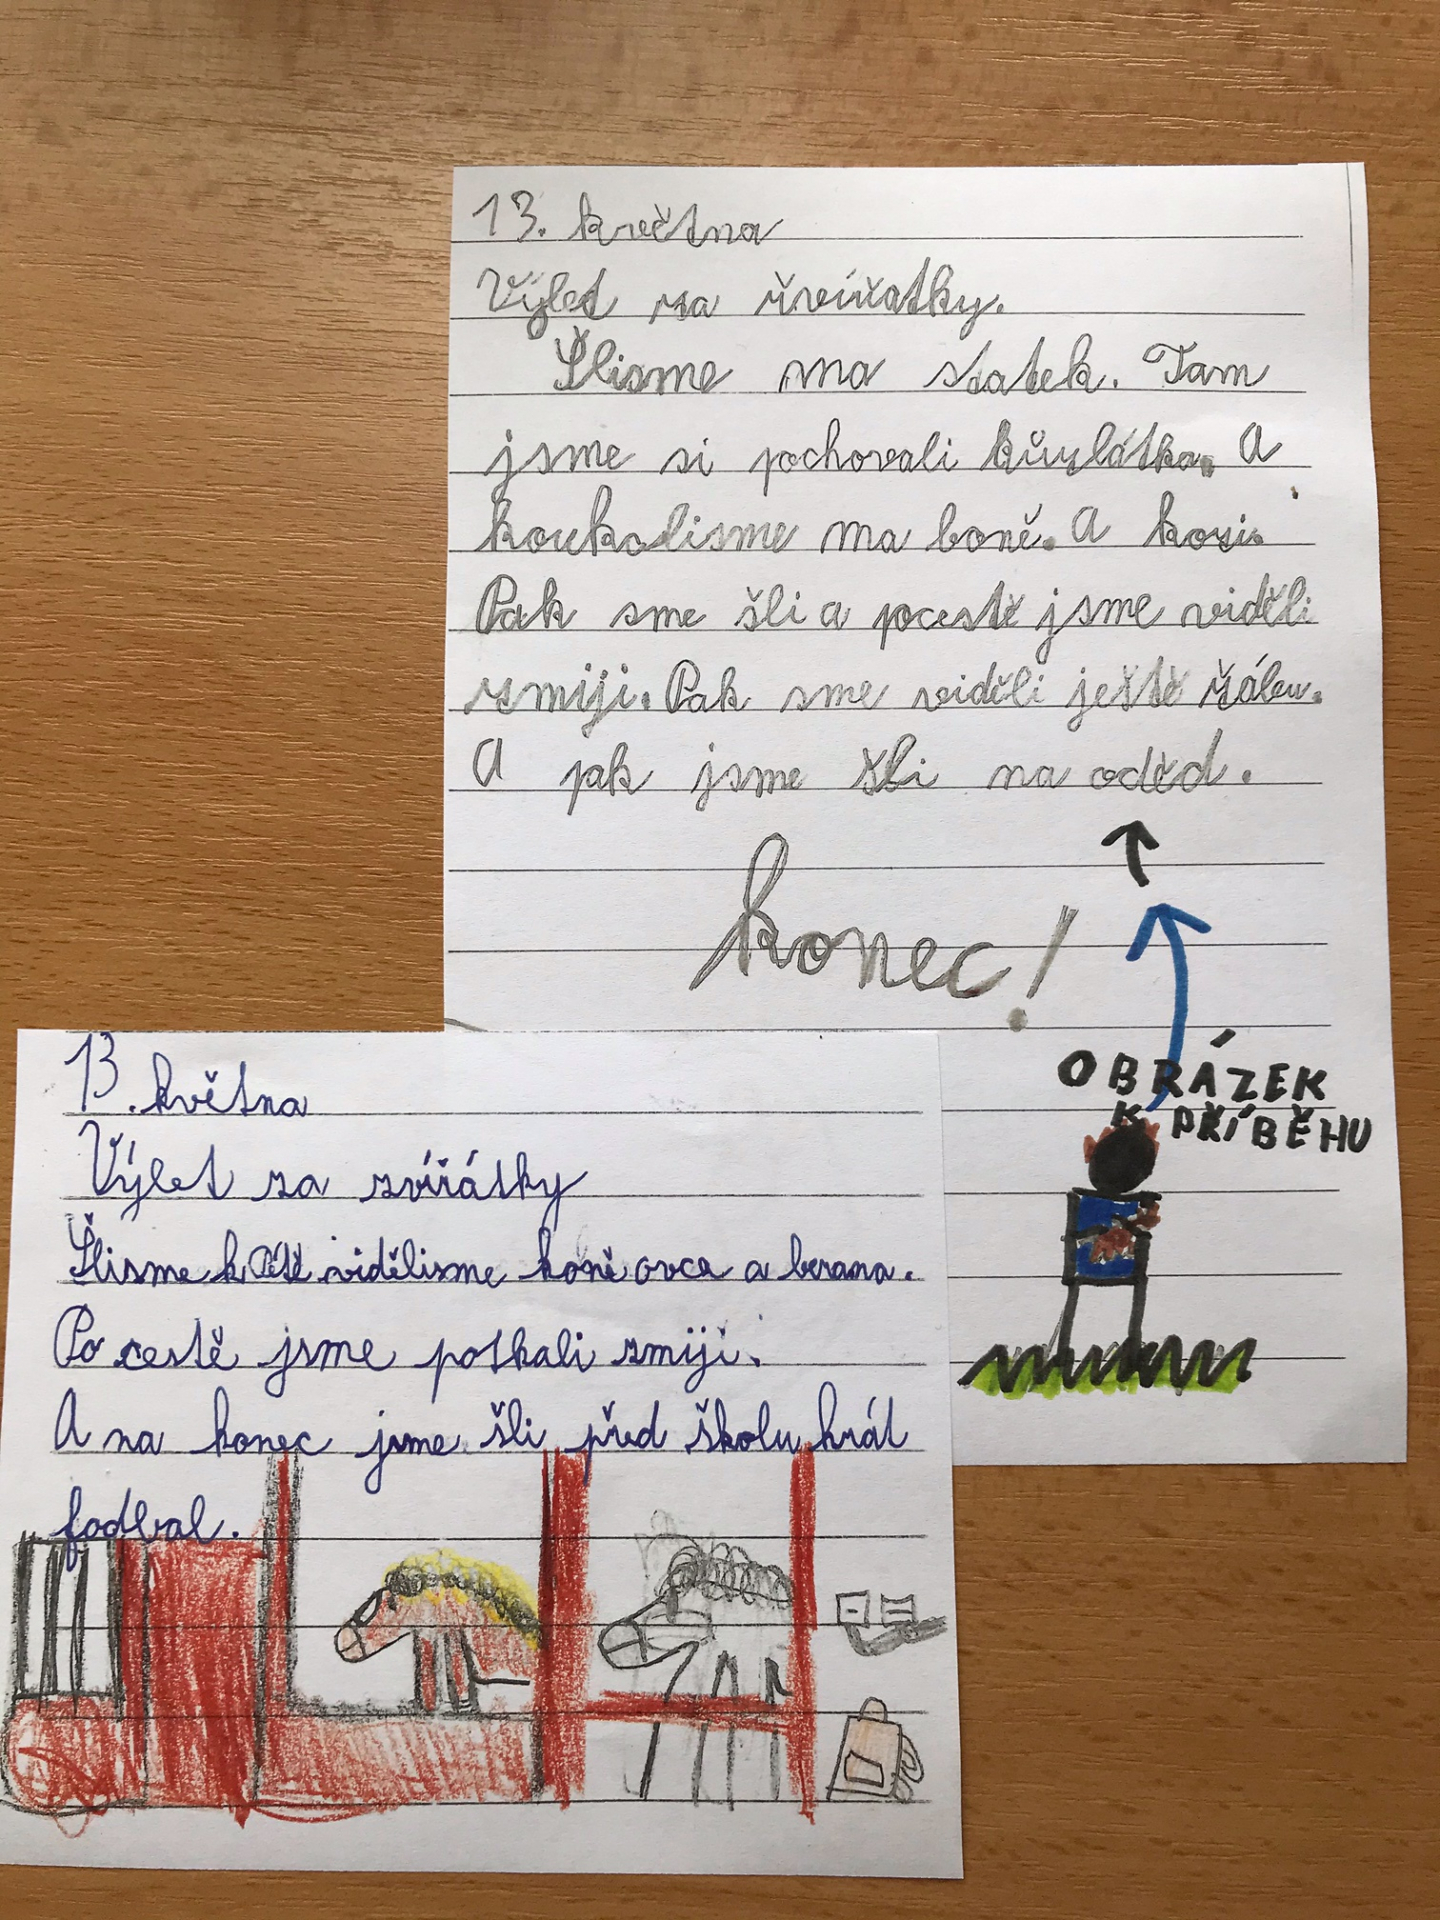 13. května
Výlet za zvířatky.
Šlisme na statek. Tam
jsme si pochovali kůzlátka. A
koukalisme na koně. A kozi.
Pak sme šli a pocestě jsme viděli
zmiji. Pak sme viděli ještě žábu.
A pak jsme šli na oděd.
konec!
OBRÁZEK
K PŘÍBĚHU
13. května
Výlet za zvířátky
Šlisme k vidělisme koně ovca a berana.
Po cestě jsme potkali zmiji.
A na konec jsme šli před školu hrát
fodbal.